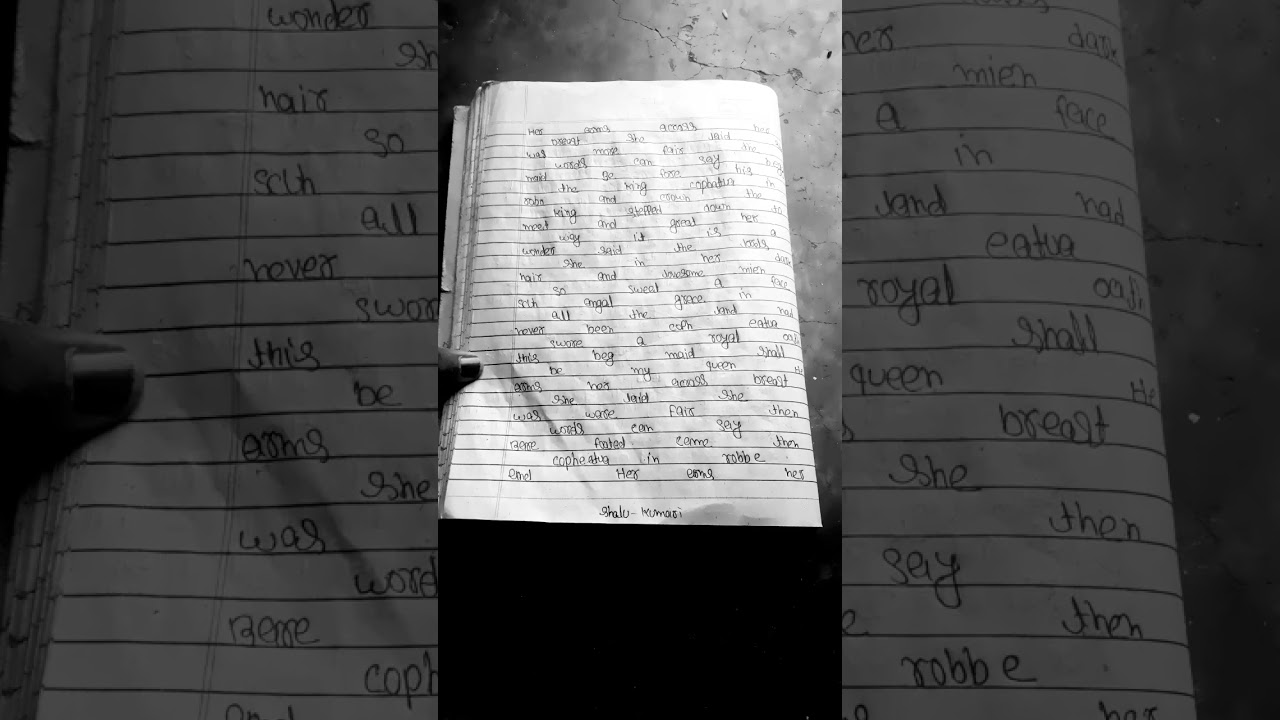 Her arms across her
breast she laid
was more fair the
words can say the beg
maid be fore his
the king cophatua in
robe and crown the
king stepped down to
meet and great her
way it is a
wonder said the lords
she in her dark
hair and lovesome mien
so sweat a face
sch angal grace in
all the land had
never been coph eatua
swore a royal oath
this beg maid shall
be my queen He
arms her across breast
she laid she
was ware fair then
words can say
Berre footed came then
copheatua in robbe
and Her arms her
Shalu - Kumari